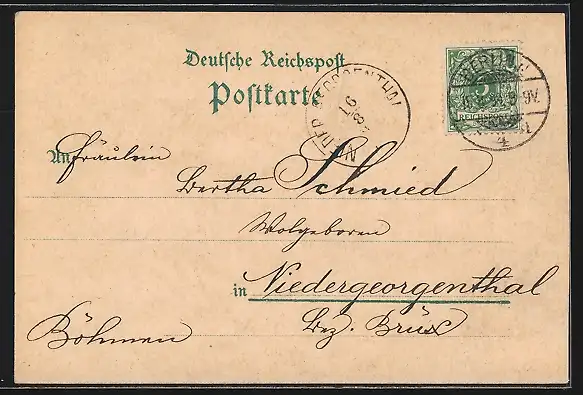 Deutsche Reichspost
Postkarte
An Fräulein
Bertha Schmied
Wolgeboren
in Niedergeorgenthal
Bez. Brüx
Böhmen
5
REICHSPOST
BERLIN
4
16
8